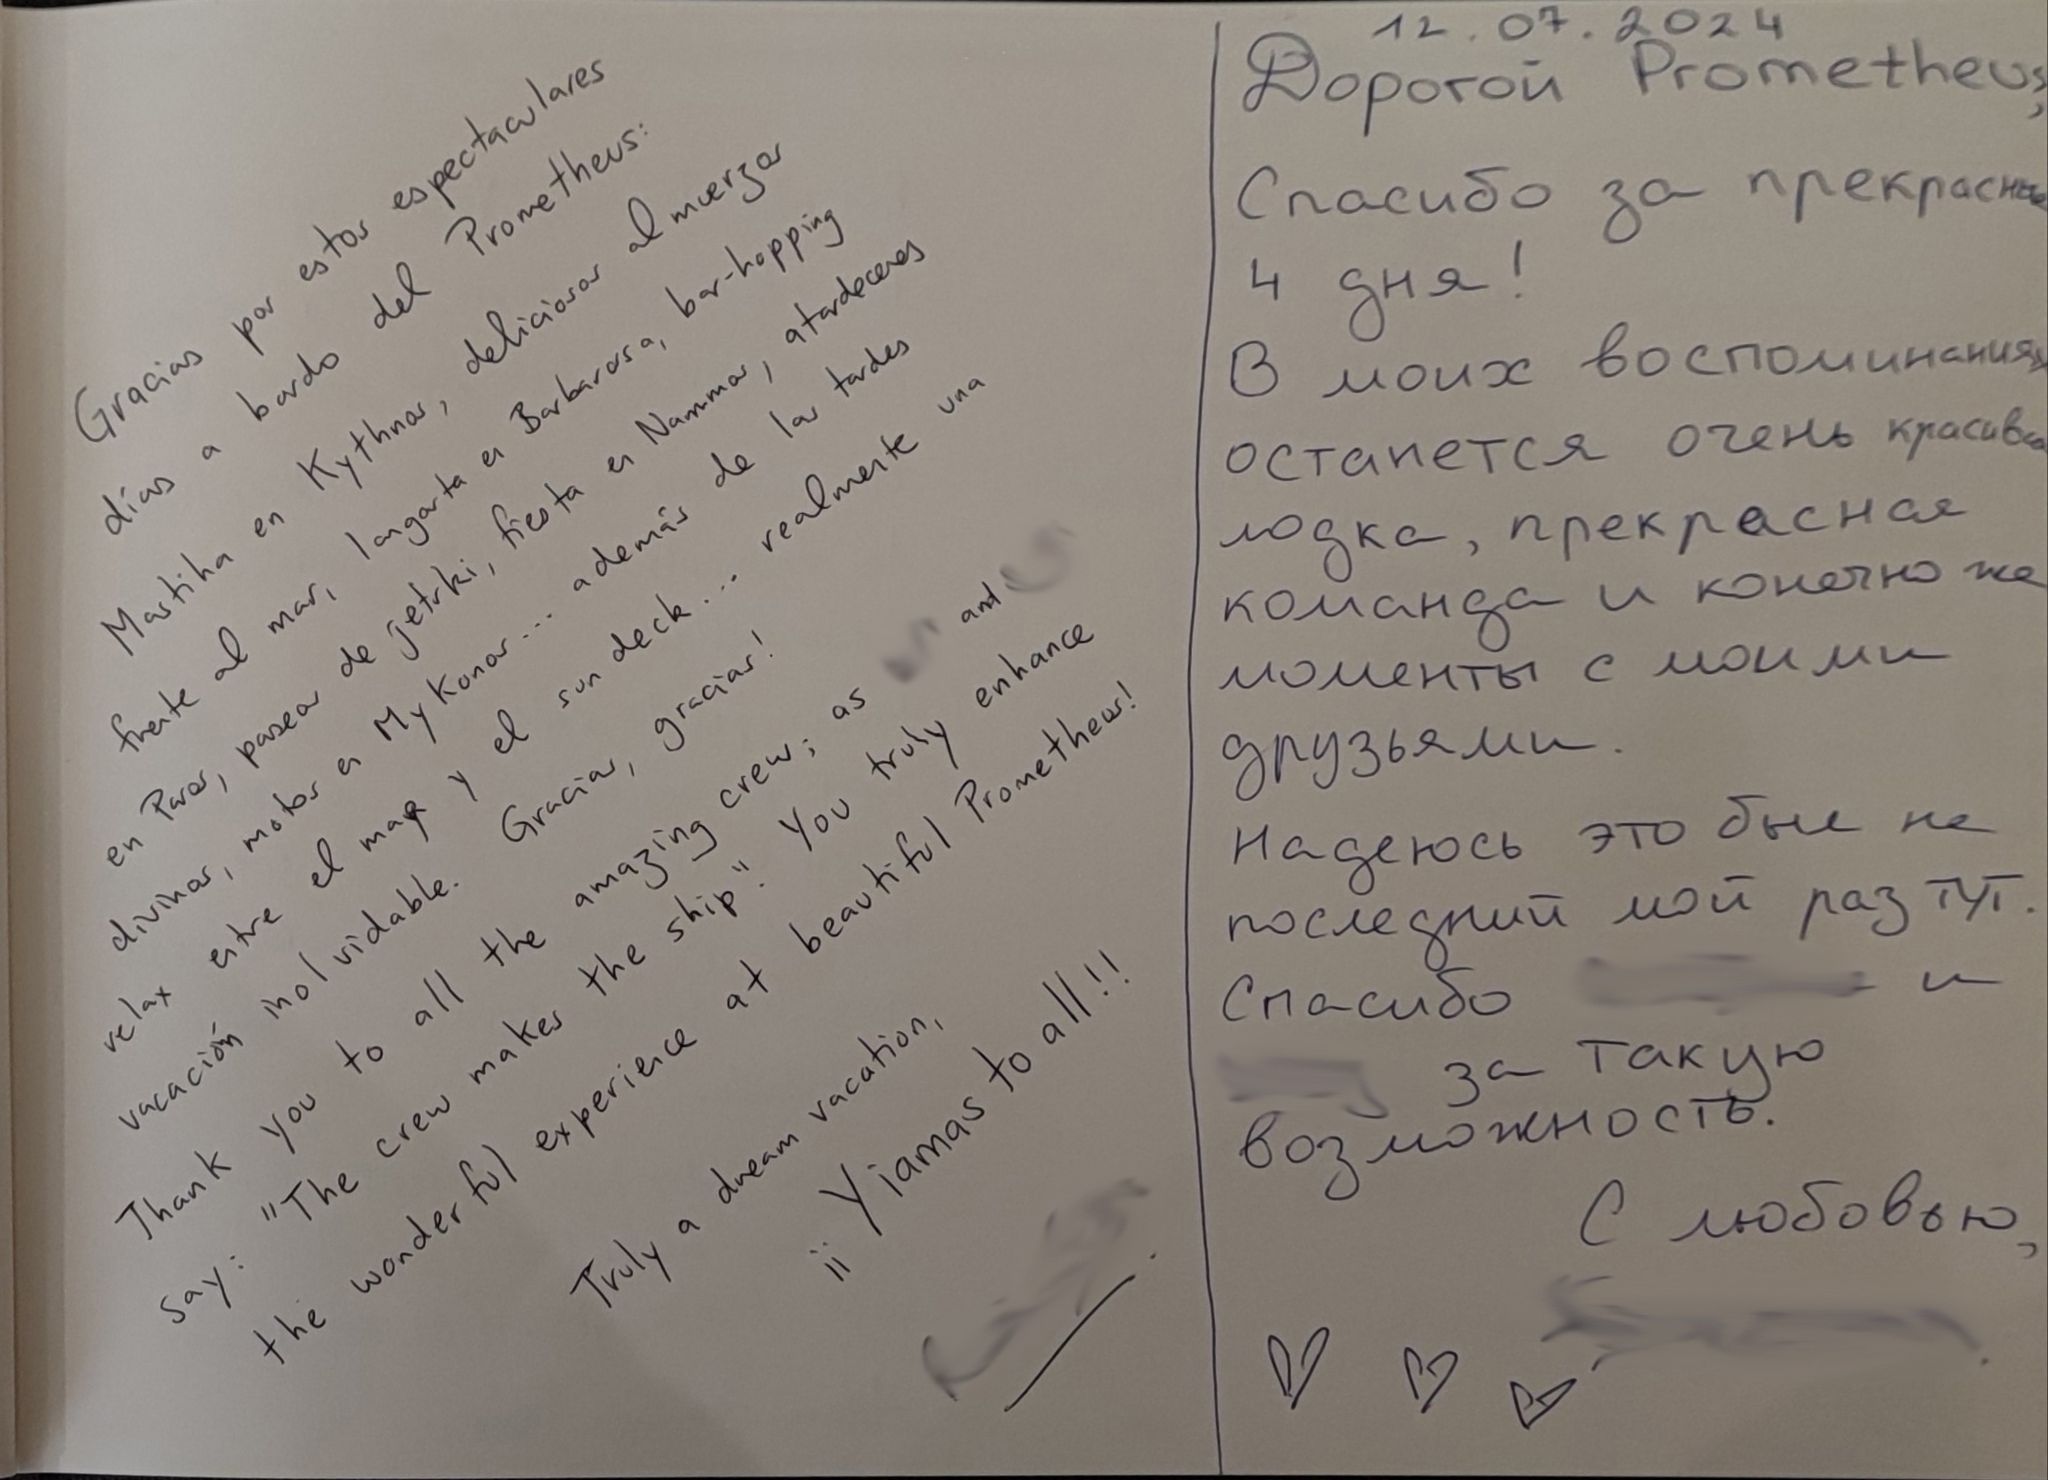 Gracias por estos espectaculares
días a bordo del Prometheus:
Mastiha en Kythnos, deliciosos almuerzos
frente al mar, langosta en Barbarosa, bar-hopping
en Paros, pasear de jetski, fiesta en Nammos, atardeceres
divinos, motos en Mykonos... además de las tardes
relax entre el mar y el sun deck... realmente una
vacación inolvidable. Gracias, gracias!
Thank you to all the amazing crew; as and
say: "The crew makes the ship". You truly enhance
the wonderful experience at beautiful Prometheus!
Truly a dream vacation,
¡¡ Yiamas to all!!
12.07.2024
Дорогой Prometheus,
Спасибо за прекрасные
4 дня!
В моих воспоминаниях
останется очень красивая
лодка, прекрасная
команда и конечно же
моменты с моими
друзьями.
Надеюсь это был не
последний мой раз тут.
Спасибо и
за такую
возможность.
С любовью,